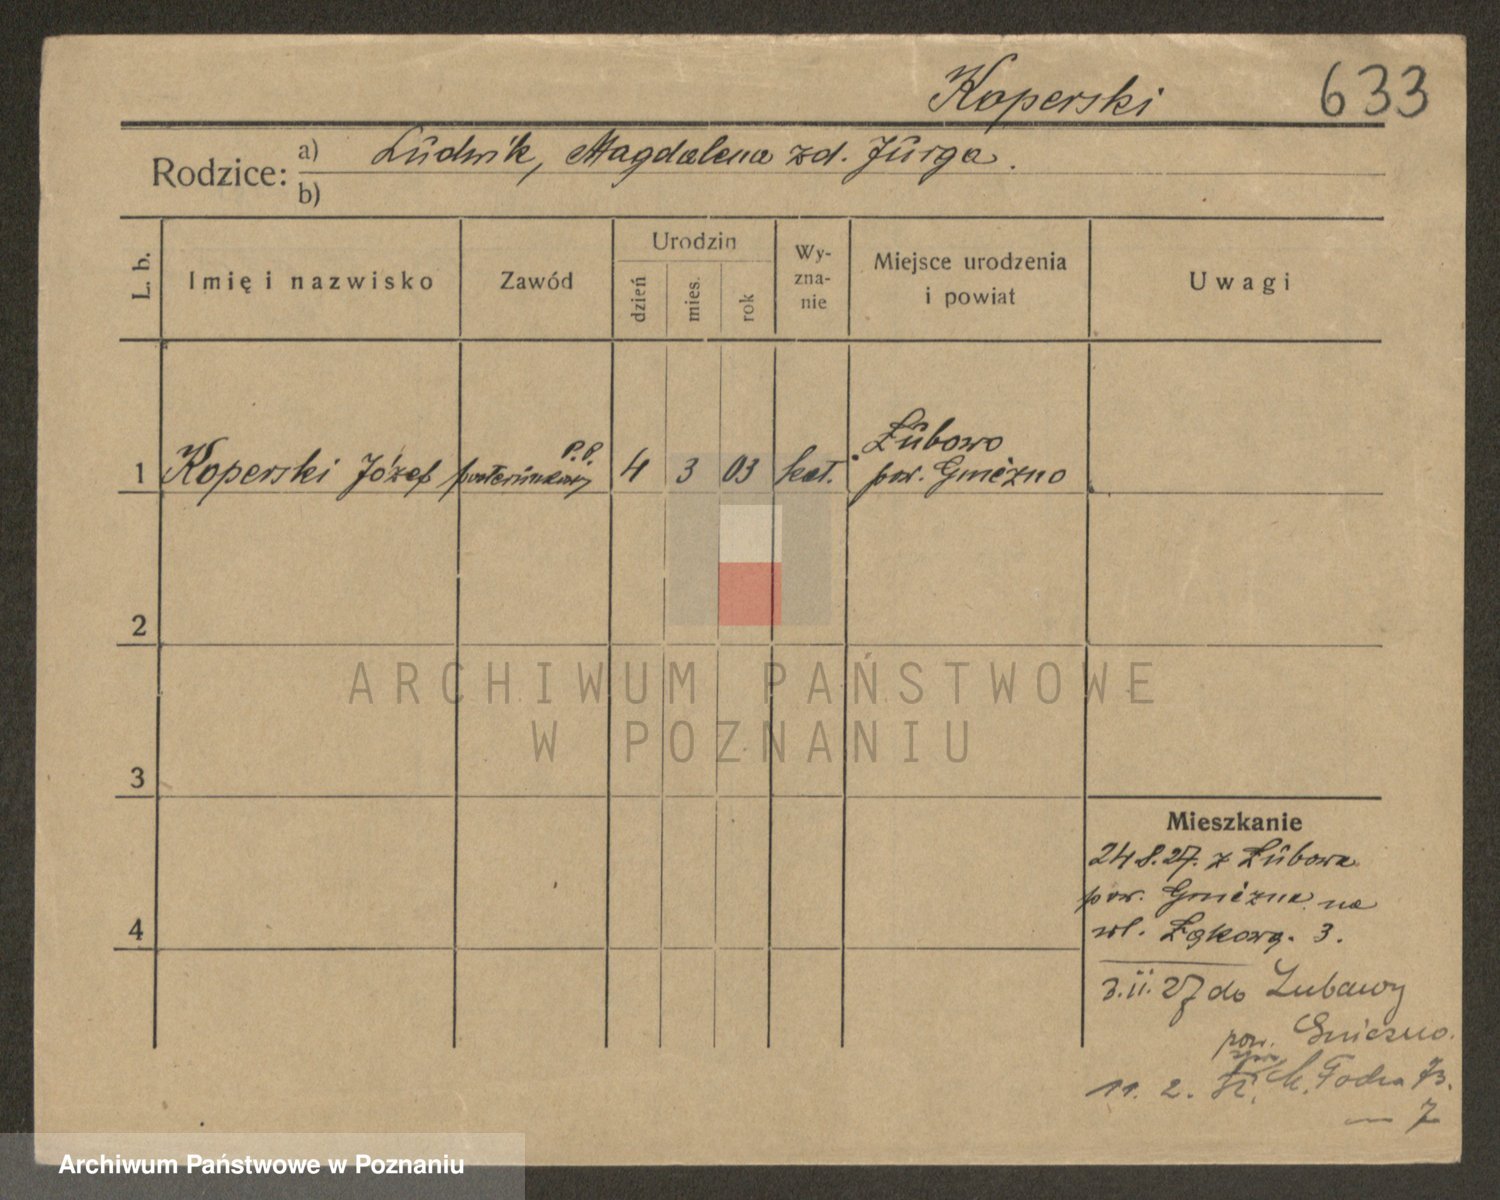 Koperski 633
Rodzice: a) Ludwik, Magdalena zd. Jurga.
b)
L. b. Imię i nazwisko Zawód Urodzin dzień mies. rok Wy-zna-nie Miejsce urodzenia i powiat Uwagi
P.P. Łubowo
1 Koperski Józef posterunkowy 4 3 03 kat. pow. Gniezno
2
3
4
Mieszkanie
24 8. 27. z Łubowa
pow. Gniezna na
ul. Łąkową. 3.
3. 11. 27 do Lubawy
pow. Gniezno.
11. 2.
7
ARCHIWUM PAŃSTWOWE
W POZNANIU
Archiwum Państwowe w Poznaniu